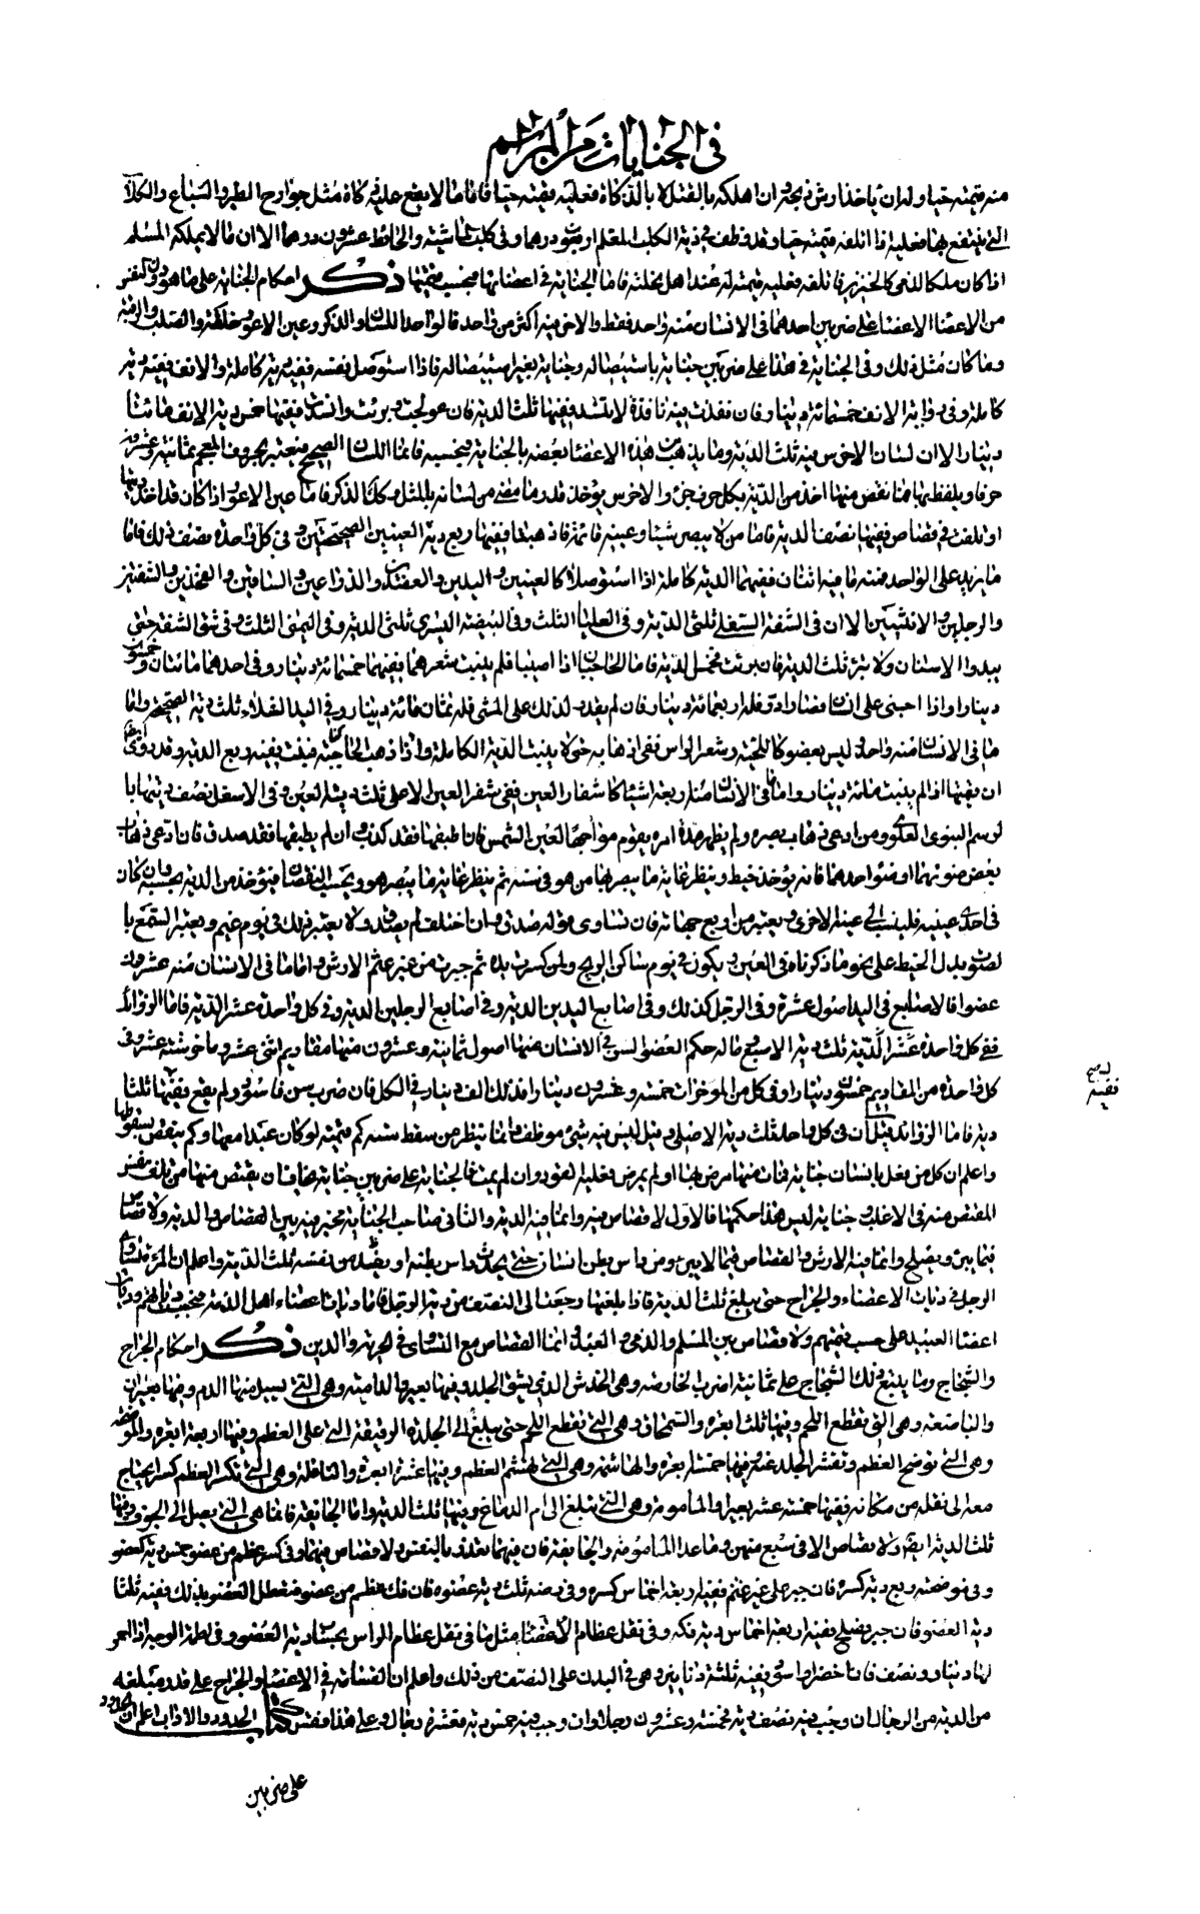 في الجنايات من المراسم
منه قيمته حيا وله ان ياخذ ارش وان اهلكه بالقتل لا بالذكاة فعليه قيمته حيا فاما ما لا يقع عليه ذكاة مثل جوارح الطير والسباع والكلاب
التي ينتفع بها فعليه اذا اتلفه قيمته حيا وقد وظف في دية الكلب المعلم اربعون درهما وفي كلب الماشية والحائط عشرون درهما الا ان ما لا يملكه المسلم
اذا كان ملكا لذمي كالخنزير فاتلفه فعليه قيمته له عند اهل نحلته فاما الجناية في اعضائها فبحسب قيمتها ذكر احكام الجناية على ما هو دون النفس
من الاعضا الاعضا على ضربين احدهما في الانسان منه واحد فقط والاخر منه اكثر من واحد فالواحد اللسان والذكر وعين الاعور خلقة والصلب والرقبة
وما كان مثل ذلك وفي الجناية في هذا على ضربين جناية باستيصاله وجناية بغير استيصاله فاذا استوصل نفسه ففيه دية كاملة والانف ففيه دية
كاملة وفي روثة الانف خمسمائة دينار فان نفذت فيه نافذة لا تنسد ففيها ثلث الدية فان عولجت وبرئت وانسدت ففيها خمس دية الانف مائتا
دينار الا ان لسان الاخرس فيه ثلث الدية وما يذهب من هذه الاعضا بعضه بالجناية فبحسبه فاما اللسان الصحيح فيعتبر بحروف المعجم ثمانية وعشرون
حرفا ويلفظ بها فما نقص منها اخذ من الدية بكل حرف جزء والاخرس يؤخذ قدر ما مضى من لسانه بالمثل وكذا الذكر فاما عين الاعور اذا كان قد اخذ ديتها
او تلفت في قصاص ففيها نصف الدية فاما من لا يبصر شيئا وعينه قائمة فاذهبها ففيها ربع دية العينين الصحيحتين وفي كل واحدة نصف ذلك فاما
ما يزيد على الواحد فمنه ما فيه اثنان ففيهما الدية كاملة اذا استوصلا كالعينين واليدين والعضدين والذراعين والساقين والفخذين والشفتين
والرجلين والانثيين الا ان في الشفة السفلى ثلثي الدية وفي العليا الثلث وفي البيضة اليسرى ثلثي الدية وفي اليمنى الثلث وفي شق الشفة حتى
يبدوا الاسنان ولا تبرء ثلث الدية فان برئت فخمس الدية فاما الحاجبان اذا اصيبا فلم ينبت شعرهما ففيهما خمسمائة دينار وفي احدهما مائتان وخمسون
دينارا واذا احنى على انسان فصار ادر فله اربعمائة دينار فان لم يقدر لذلك على المشي فله ثمان مائة دينار وفي اليد الشلاء ثلث دية الصحيحة واما
ما في الانسان منه واحد وليس بعضو كاللحية وشعر الراس ففي اذهابه حتى لا ينبت الدية الكاملة واذا ذهب الحاجبه فنبت ففيه ربع الدية وقد روى ايضا
ان فيها اذا لم ينبت مائة دينار واما ما في الانسان منه اربعة اشياء كاشفار العين ففي شفر العين الاعلى ثلث دية العين وفي الاسفل نصف ديتها با
لرسم النبوى العلوى ومن ادعى ذهاب بصره ولم يظهر هذا امره يقوم مواجها لعين الشمس فان طبقها فقد كذب وان لم يطبقها فقد صدق فان ادعى ذهاب
بعض ضوئهما او ضوء احدهما فانه يؤخذ خيط وينظر غاية ما يبصر بها من هو في سنه ثم ينظر غاية ما يبصر هو وبحسب النقصان فيؤخذ من الدية بحسبه وان كان
في احدى عينيه فلينسب الى عينه الاخرى ويعتبر من اربع جهاته فان تساوى قوله صدق وان اختلف لم يصدق ولا يعتبر ذلك في يوم غيم ويعتبر السمع با
لصوت بدل الخيط على نحو ما ذكرناه في العين ويكون في يوم ساكن الريح ولمن كسرت يده ثم جبرت من غير عثم الارش واما ما في الانسان منه عشرون
عضوا فالاصابع في اليد اصول عشرة وفي الرجل كذلك وفي اصابع اليدين الدية وفي اصابع الرجلين الدية وفي كل واحدة عشر الدية فاما الزوائد
ففي كل واحدة عشر الدية ثلث دية الاصبع ماله حكم العضو السن في الانسان منها اصول ثمانية وعشرون منها مقاديم اثنى عشر وماخر ستة عشر وفي
كل واحدة من المقاديم خمسون دينارا وفي كل من الموخرات خمسة وعشرون دينارا فذلك الف دينار في الكل فان ضرب سن فاسود ولم يقع ففيها ثلثا
ديته فاما الزوائد فقيل ان في كل واحد ثلث دية الاصلى وقيل ليس فيه شئ موظف وانما ينظر من سقط سنه كم قيمته لو كان عبدا معها وكم ينقص بسقوطها
واعلم ان كل من فعل بانسان جناية فمات منها مرض بها او لم يمرض فعليه القود وان لم يمت فالجناية على ضربين جناية يخاف ان يقتص منها من تلف نفس
المقتص منه في الاغلب وجناية ليس هذا حكمها فالاول لا قصاص فيه وانما فيه الدية والثاني صاحب الجناية مخير فيه بين القصاص والدية ولا قصاص
فيما يبرئ ويصلح وانما فيه الارش والقصاص فيما لا يبرئ ومن داس بطن انسان حتى يحدث داس بطنه او يفتدى من نفسه بثلث الدية واعلم ان المرئة تساوى
الرجل في ديات الاعضاء والجراح حتى يبلغ ثلث الدية فاذا بلغتها رجعت الى النصف من دية الرجل فاما ديات اعضاء اهل الذمة فبحسب دياتهم وديات
اعضاء العبيد على حسب قيمتهم ولا قصاص بين المسلم والذمي والعبد انما القصاص مع التساوي في الحرية والدين ذكر احكام الجراح
والشجاج وما يليق بذلك الشجاج على ثمانية اضرب الخارصة وهي الخدش الذي يشق الجلد وفيها بعير والدامية وهي التي يسيل منها الدم وفيها بعيران
والباضعة وهي التي تقطع اللحم وفيها ثلث ابعره والسمحاق وهي التي تقطع اللحم حتى يبلغ الى الجلدة الرقيقة التي على العظم وفيها اربعة ابعره والموضحه
وهي التي توضح العظم وتقشر الجلد عنه وفيها خمسة ابعره والهاشمه وهي التي تهشم العظم وفيها عشرة ابعره والناقلة وهي التي تكسر العظم كسرا يحتاج
معه الى نقله من مكانه ففيها خمسة عشر بعيرا والمامومة وهي التي تبلغ الى ام الدماغ وفيها ثلث الدية واما الجائفة فانما هي التي يصل الى الجوف وفيها
ثلث الدية ايضا ولا قصاص الا في سبع منهن وما عدا المامومة والجائفة فان فيهما تغرير بالنفس ولا قصاص فيهما وفي كسر عظم من عضو خمس دية العضو
وفي موضحته ربع دية كسره فان جبر على غير عثم ففيه اربعة اخماس كسره وفي رضه ثلث دية عضوه فان فك عظم من عضو فتعطل العضو بذلك ففيه ثلثا
دية العضو فان جبر وصلح ففيه اربعة اخماس دية فكه وفي نقل عظام الاعضاء مثل ما في نقل عظام الراس بحساب دية العضو وفي لطمة الوجه اذا احمر
لها دينار ونصف فان اخضر او اسود ففيه ثلثة دنانير وهي في البدن على النصف من ذلك واعلم ان القسامة في الاعضاء والجراح على قدر مبلغه
من الدية من الرجال ان وجب فيه نصف دية فخمسة وعشرون رجلا وان وجب فيه خمس دية فعشرة رجال وعلى هذا فقس كتاب الحدود والاداب اعلم ان الحدود
على ضربين